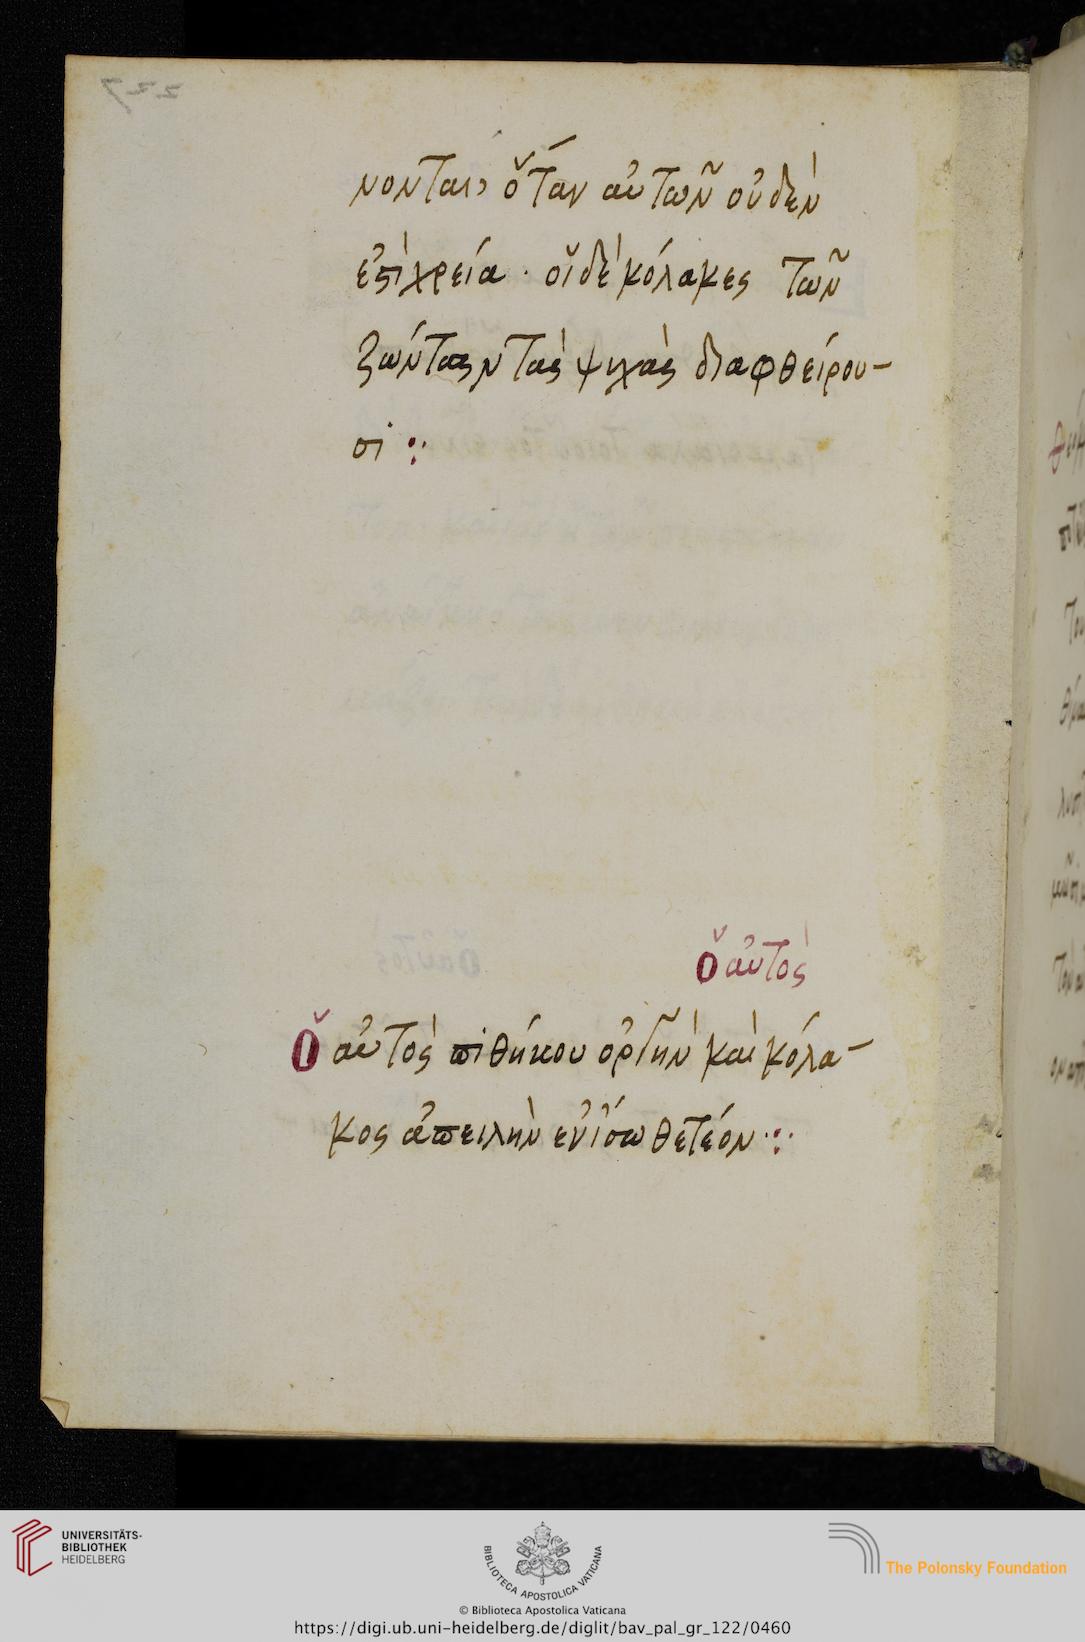 νονται, ὅταν αὐτῶν οὐδὲν
ἐστὶ χρεία · οἱ δὲ κόλακες τῶν
ζώντων τὰς ψυχὰς διαφθείρου-
σι ⁘
ὁ αὐτὸς
Ὁ αὐτὸς πιθήκου ὀργὴν καὶ κόλα-
κος ἀπειλὴν ἐν ἴσω θετέον ⁘
UNIVERSITÄTS-
BIBLIOTHEK
HEIDELBERG
BIBLIOTECA APOSTOLICA VATICANA
The Polonsky Foundation
© Biblioteca Apostolica Vaticana
https://digi.ub.uni-heidelberg.de/diglit/bav_pal_gr_122/0460